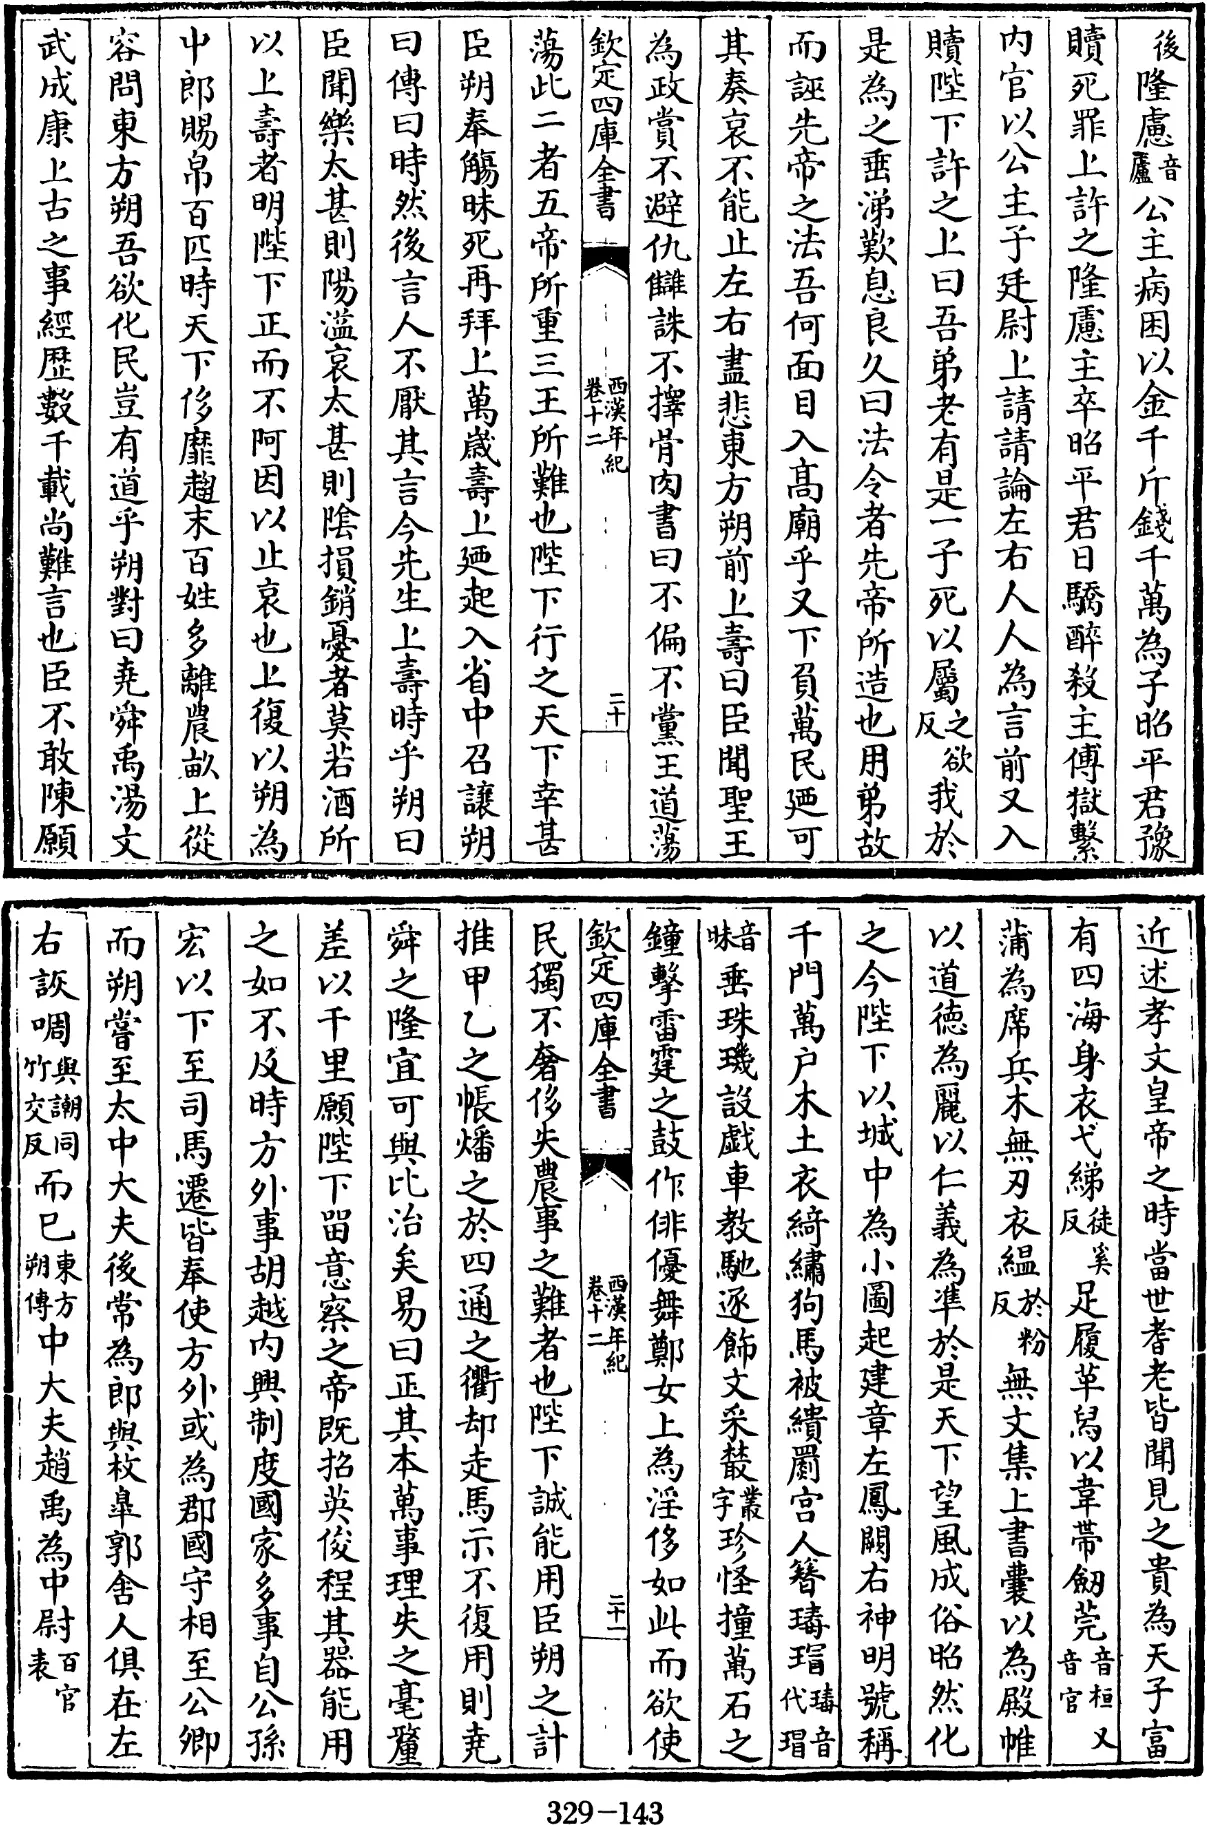 後隆慮音廬公主病困以金千斤錢千萬為子昭平君豫
贖死罪上許之隆慮主卒昭平君日驕醉殺主傅獄繫
内官以公主子廷尉上請請論左右人人為言前又入
贖陛下許之上曰吾弟老有是一子死以屬之欲反我於
是為之垂涕歎息良久曰法令者先帝所造也用弟故
而誣先帝之法吾何面目入高廟乎又下負萬民廼可
其奏哀不能止左右盡悲東方朔前上壽曰臣聞聖王
為政賞不避仇讎誅不擇骨肉書曰不偏不黨王道蕩
欽定四庫全書 西漢年紀卷十二 二十
蕩此二者五帝所重三王所難也陛下行之天下幸甚
臣朔奉觴昧死再拜上萬嵗壽上廼起入省中召讓朔
曰傳曰時然後言人不厭其言今先生上壽時乎朔曰
臣聞樂太甚則陽溢哀太甚則隂損銷憂者莫若酒所
以上壽者明陛下正而不阿因以止哀也上復以朔為
中郎賜帛百匹時天下侈靡趨末百姓多離農畝上從
容問東方朔吾欲化民豈有道乎朔對曰堯舜禹湯文
武成康上古之事經歴數千載尚難言也臣不敢陳願
近述孝文皇帝之時當世耆老皆聞見之貴為天子富
有四海身衣弋綈徒奚反足履革舄以韋帶劒莞音桓又音官
蒲為席兵木無刃衣緼於粉反無文集上書囊以為殿帷
以道德為麗以仁義為準於是天下望風成俗昭然化
之今陛下以城中為小圖起建章左鳳闕右神明號稱
千門萬户木土衣綺繡狗馬被繢罽宫人簪瑇瑁瑇音代瑁音
昧垂珠璣設戲車教馳逐飾文采䕺叢字珍怪撞萬石之
鐘擊雷霆之鼓作俳優舞鄭女上為淫侈如此而欲使
欽定四庫全書 西漢年紀卷十二 二十一
民獨不奢侈失農事之難者也陛下誠能用臣朔之計
推甲乙之帳燔之於四通之衢却走馬示不復用則堯
舜之隆宜可與比治矣易曰正其本萬事理失之毫釐
差以千里願陛下留意察之帝既招英俊程其器能用
之如不及時方外事胡越内興制度國家多事自公孫
宏以下至司馬遷皆奉使方外或為郡國守相至公卿
而朔嘗至太中大夫後常為郎與枚臯郭舍人俱在左
右詼啁與謿同竹交反而已東方朔傳中大夫趙禹為中尉百官表
329-143